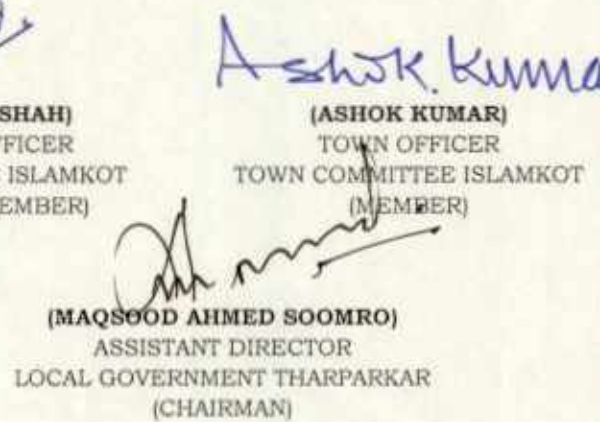 Ashok. Kuma
SHAH)
FICER
ISLAMKOT
EMBER)
(ASHOK KUMAR)
TOWN OFFICER
TOWN COMMITTEE ISLAMKOT
(MEMBER)
(MAQSOOD AHMED SOOMRO)
ASSISTANT DIRECTOR
LOCAL GOVERNMENT THARPARKAR
(CHAIRMAN)